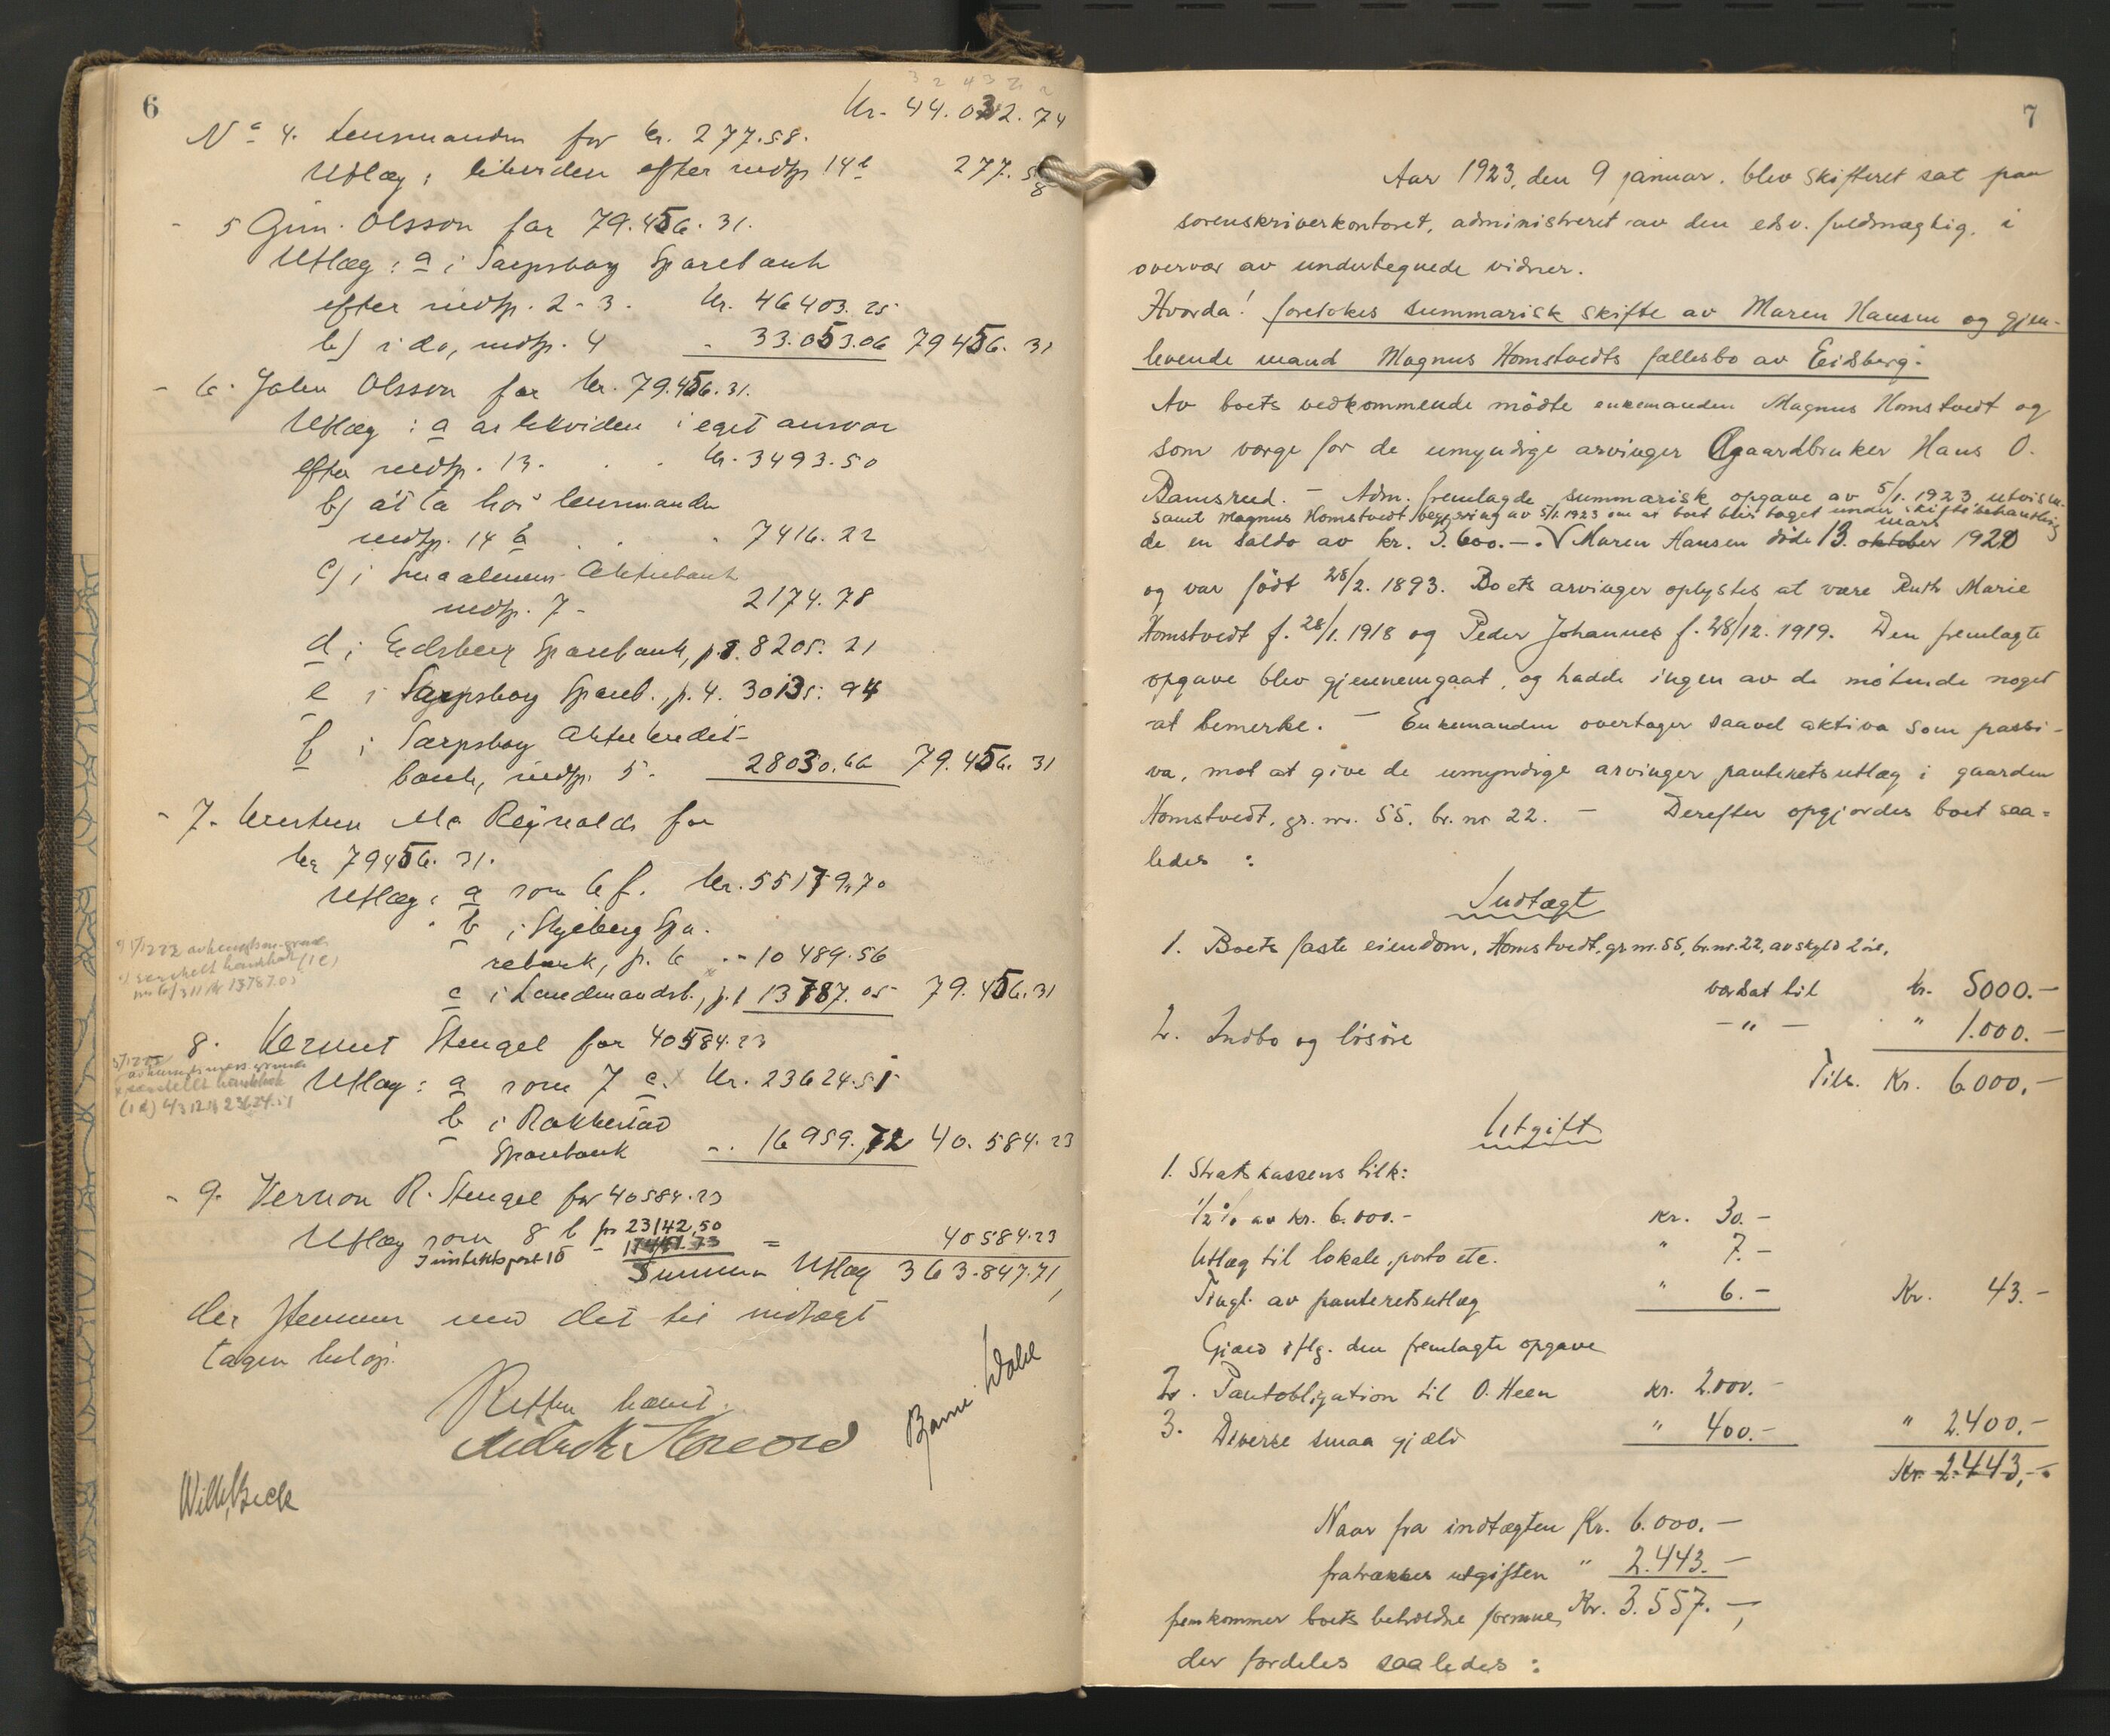 6
Kr. 44.032.74
No 4. Lensmanden for kr. 277.58.
Utlæg: likviden efter indtp 14b 277.58
- 5 Gun. Olsson for 79.456.31.
Utlæg: a i Sarpsborg Sparebank
efter indtp. 2-3. Kr. 46403.25
b) i do, indtp. 4 - 33.053.06 79456.31
- 6. John Olsson for kr. 79.456.31.
Utlæg: a likviden i eget ansvar
efter indtp. 13. kr. 3493.50
b) at ta hos lensmanden
indtp. 14 a - 7416.22
c) i Smaalenenes Aktiebank
indtp. 7 - 2174.78
d i Eidsberg Sparebank, p. 8. 8205.21
e i Sarpsborg Spareb., p. 4. 30135.94
f i Sarpsborg Aktiekredit-
bank, indtp. 5. 28030.66 79.456.31
- 7. Kersten Mc Reynolds for
kr 79456.31.
Utlæg: a som 6 f. Kr. 55179.70
b i Skjeberg Spa-
rebank, p. 6 - 10489.56
c i Landmandsb., p. 1 13787.05 79.456.31
8. Vernut Stengel for 40584.23
Utlæg: a som 7 c. Kr. 23624.51
b i Rakkestad
Sparebank - 16959.72 40.584.23
- 9. Vernon R. Stengel for 40584.23
Utlæg som 8 b kr 23142.50
I indtektspost 10 - 17441.73 = 40584.23
Summa Utlæg 363.847.71,
der stemmer med det til indtægt
tagen beløp.
Retten hævet.
Bjarne Dahl
Wilh. Beck
7
Aar 1923, den 9 januar. blev skifteret sat paa
sorenskriverkontoret, administreret av den edsv. fuldmægtig, i
overvær av undertegnede vidner.
Hvorda! foretokes summarisk skifte av Maren Hansen og gjen-
levende mand Magnus Homstvedts fællesbo av Eidsberg.
Av boets vedkommende mødte enkemanden Magnus Homstvedt og
som værge for de umyndige arvinger gaardbruker Hans O.
Ramsrud. - Adm. fremlagde summarisk opgave av 5/1. 1923, utvisen-
samt Magnus Homstvedt begjæring av 5/1 1923 om at boet blir taget under skiftebehandling
de en saldo av kr. 3.600.-. √ Maren Hansen døde 13. oktober mars 1920
og var født 28/2. 1893. Boets arvinger oplystes at være Ruth Marie
Homstvedt f. 28/1. 1918 og Peder Johannes f. 28/12. 1919. Den fremlagte
opgave blev gjennemgaat, og hadde ingen av de møtende noget
at bemerke. - Enkemanden overtager saavel aktiva som passi-
va, mot at give de umyndige arvinger panteretsutlæg i gaarden
Homstvedt, gr. nr. 55, br. nr 22. - Derefter opgjordes boet saa-
ledes:
Indtægt
1. Boets faste eiendom, Homstvedt, gr nr. 55, br. nr. 22, av skyld 2 øre,
værdsat til kr. 5000.-
2. Indbo og løsøre -"- " 1.000.-
Tils. Kr. 6000,-
Utgift
1. Statskassens tilk:
1/2% av kr. 6.000.- kr. 30.-
Utlæg til lokale, porto etc. " 7.-
Tingl. av panteretsutlæg " 6.- Kr. 43.-
Gjæld iflg. den fremlagte opgave
2. Pantobligation til O. Heen kr. 2.000.-
3. Diverse smaa gjæld " 400.- " 2.400.-
Kr. 2.443,-.
Naar fra indtægten Kr. 6.000.-
fratrækkes utgiften " 2.443.-
fremkommer boets beholdne formue, Kr. 3.557.-,
der fordeles saaledes: